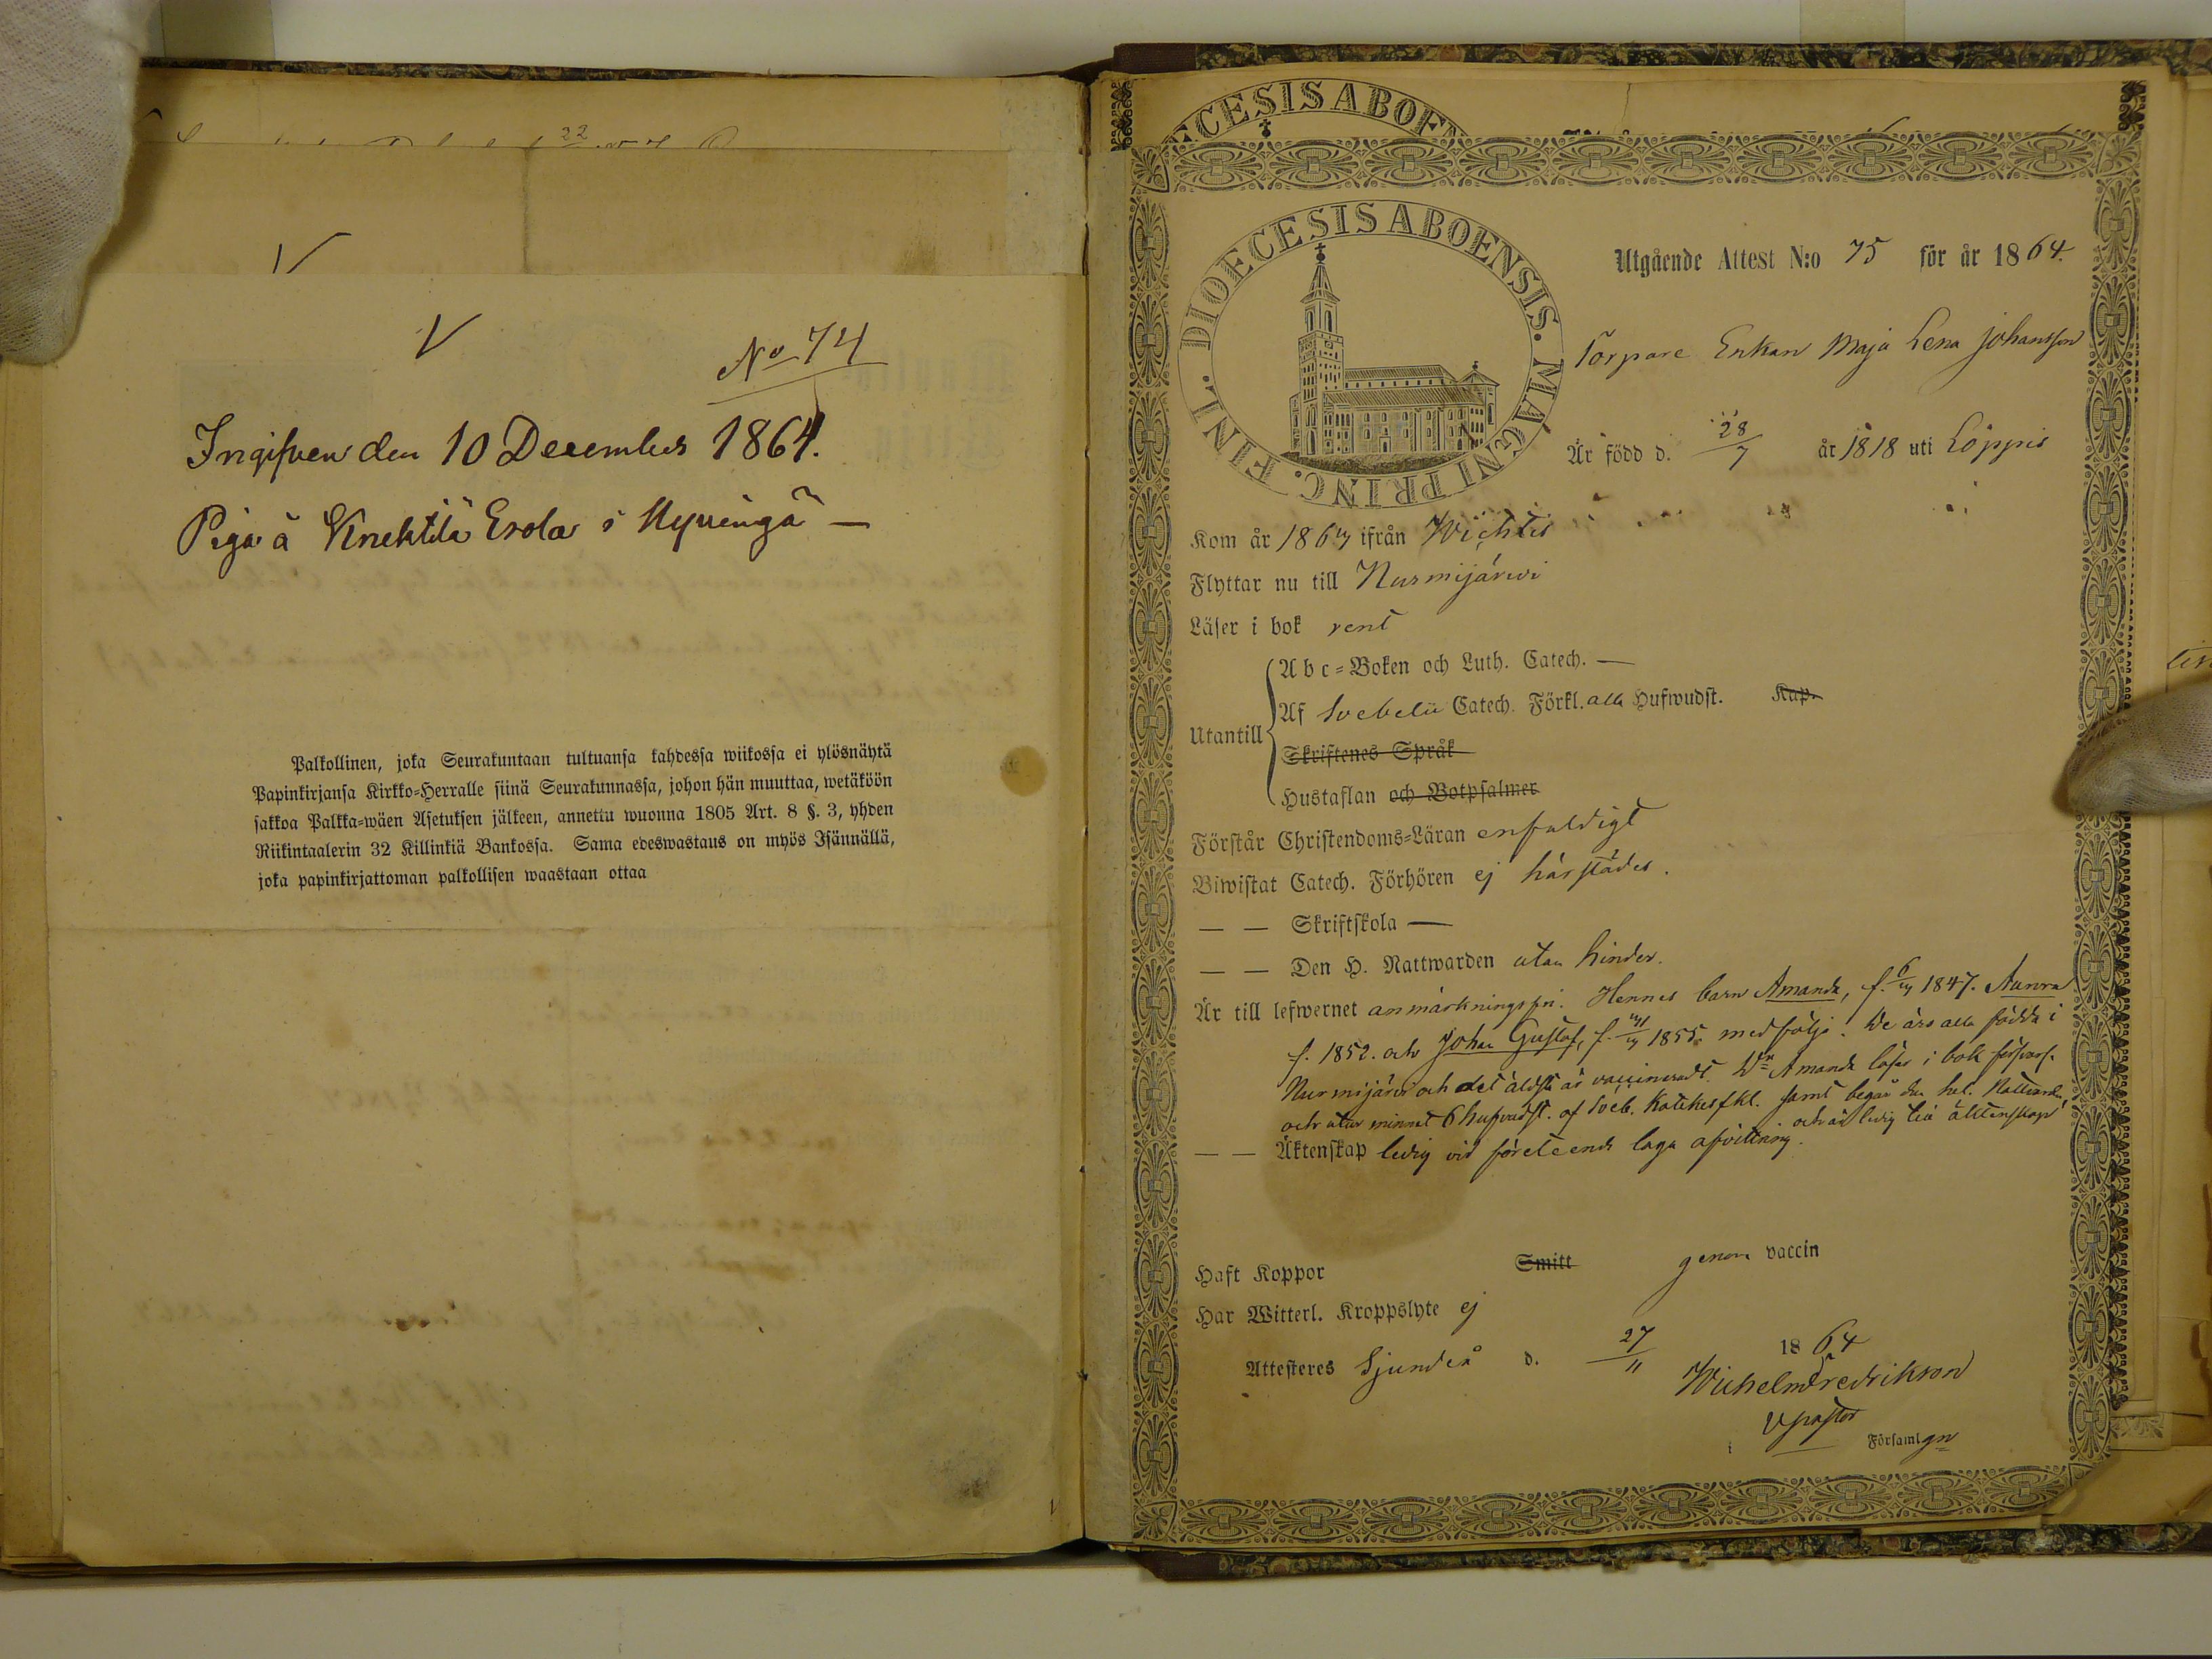 22
V
V
No 74
Ingifven den 10 December 1864.
Piga å Knektilä Erola i Hyvingä —
Palkollinen, joka Seurakuntaan tultuansa kahdessa wiikossa ei ylösnäytä
Papinkirjansa Kirkko-Herralle siinä Seurakunnassa, johon hän muuttaa, wetäköön
sakkoa Palkka-wäen Asetuksen jälkeen, annettu wuonna 1805 Art. 8 §. 3, yhden
Riikintaalerin 32 Killinkiä Bankossa. Sama edeswastaus on myös Isännällä,
joka papinkirjattoman palkollisen waastaan ottaa
DIOECESIS ABOENSIS. MAGNI PRINC. FINL.
Utgående Attest N:o 75 för år 1864.
Torpare Enkan Maja Lena Johansson
Är född d. 28/7 år 1818 uti Loppis
Kom år 186 ifrån Wichtis
Flyttar nu till Nurmijärwi
Läser i bok rent
Utantill
Abc-Boken och Luth. Catech. —
Af Svebelii Catech. Förkl. alla Hufwudst. Kap.
Skriftenes Språk
Hustaflan och Botpsalmer
Förstår Christendoms-Läran enfaldigt
Biwistat Catech. Förhören ej härstädes.
— — Skriftskola —
— — Den H. Nattwarden utan hinder.
Är till lefwernet anmärkningsfri. Hennes barn Amanda, f. 6 1847. Aurora
f. 1852. och Johan Gustaf, f. 1855. medfölja. De äro alla födda i
Nurmijärvi och det äldsta är vaccineradt. Dn Amanda läser i bok försvarl.
och utur minnet 6 hufvudst. af Sveb. Katekesfkl. samt begår den hel. Nattvarden,
och är ledig till äktenskap
— — Äktenskap ledig vid företeende laga afvittring.
Haft Koppor Smitt genom vaccin
Har Witterl. Kroppslyte ej
Attesteres Sjundeå d. 27/11 1864
Wilhelm Fredrikson
V pastor
i Församlgn